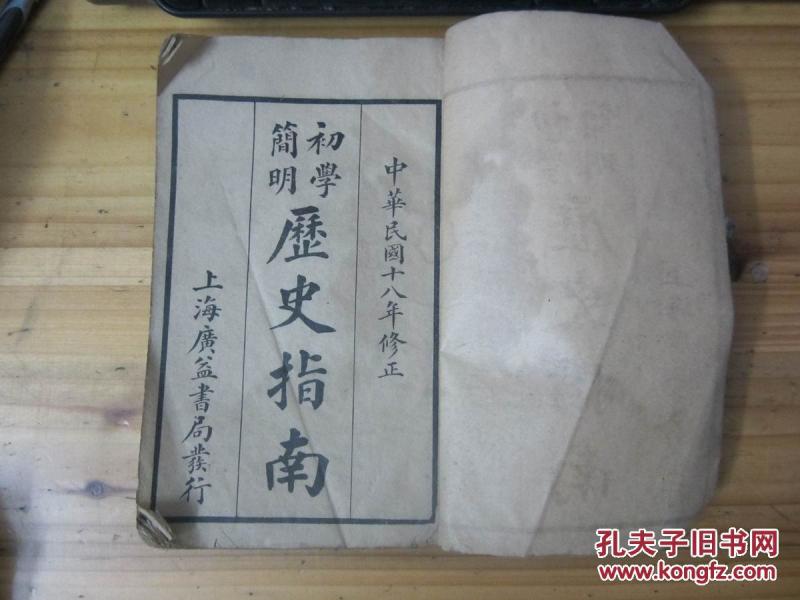 中華民國十八年修正
初學
簡明
歷史指南
上海廣益書局發行
孔夫子旧书网
www.kongfz.com